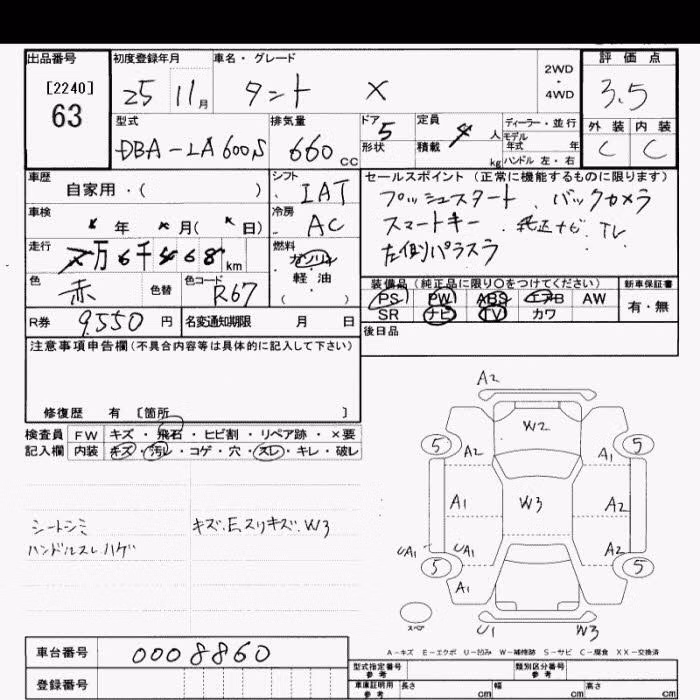 出品番号 初度登録年月 車名・グレード 2WD ・ 4WD 評価点
[2240] 63 25 11月 タント X 3.5
型式 排気量 ドア 形状 定員 積載 ディーラー・並行 モデル年式 年 外装 内装
DBA-LA600S 660 CC 5 4 人 kg ハンドル 左・右 C C
車歴 自家用・( ) シフト IAT セールスポイント (正常に機能するものに限ります)
プッシュスタート バックカメラ
車検 年 月( 日) 冷房 AC スマートキー 純正ナビ TV
走行 万6千468 km 燃料 ガソリン 軽・油 左側パワスラ
色 赤 色替 色コード R67 装備品 (純正品に限り〇をつけてください) 新車保証書
PS PW ABS エアB AW 有・無
R券 9,550 円 名変通知期限 月 日 SR ナビ TV カワ
注意事項申告欄(不具合内容等は具体的に記入して下さい) 後日品
修復歴 有 〔箇所 〕
検査員 FW キズ・飛石・ヒビ割・リペア跡・×要
記入欄 内装 キズ・汚レ・コゲ・穴・スレ・キレ・破レ
シートシミ キズ.E.スリキズ.W3
ハンドルスレ.ハゲ
A2
W2
5 A2 A1 5
A1 W3 A2
UA1 UA1 A2
5 A1 5
スペア U1 W3
A-キズ E-エクボ U-凹み W-補修跡 S-サビ C-腐食 XX-交換済
車台番号 0008860
型式指定番号 参考 類別区分番号 参考
登録番号 車庫証明用 参考 長さ cm 幅 cm 高さ cm